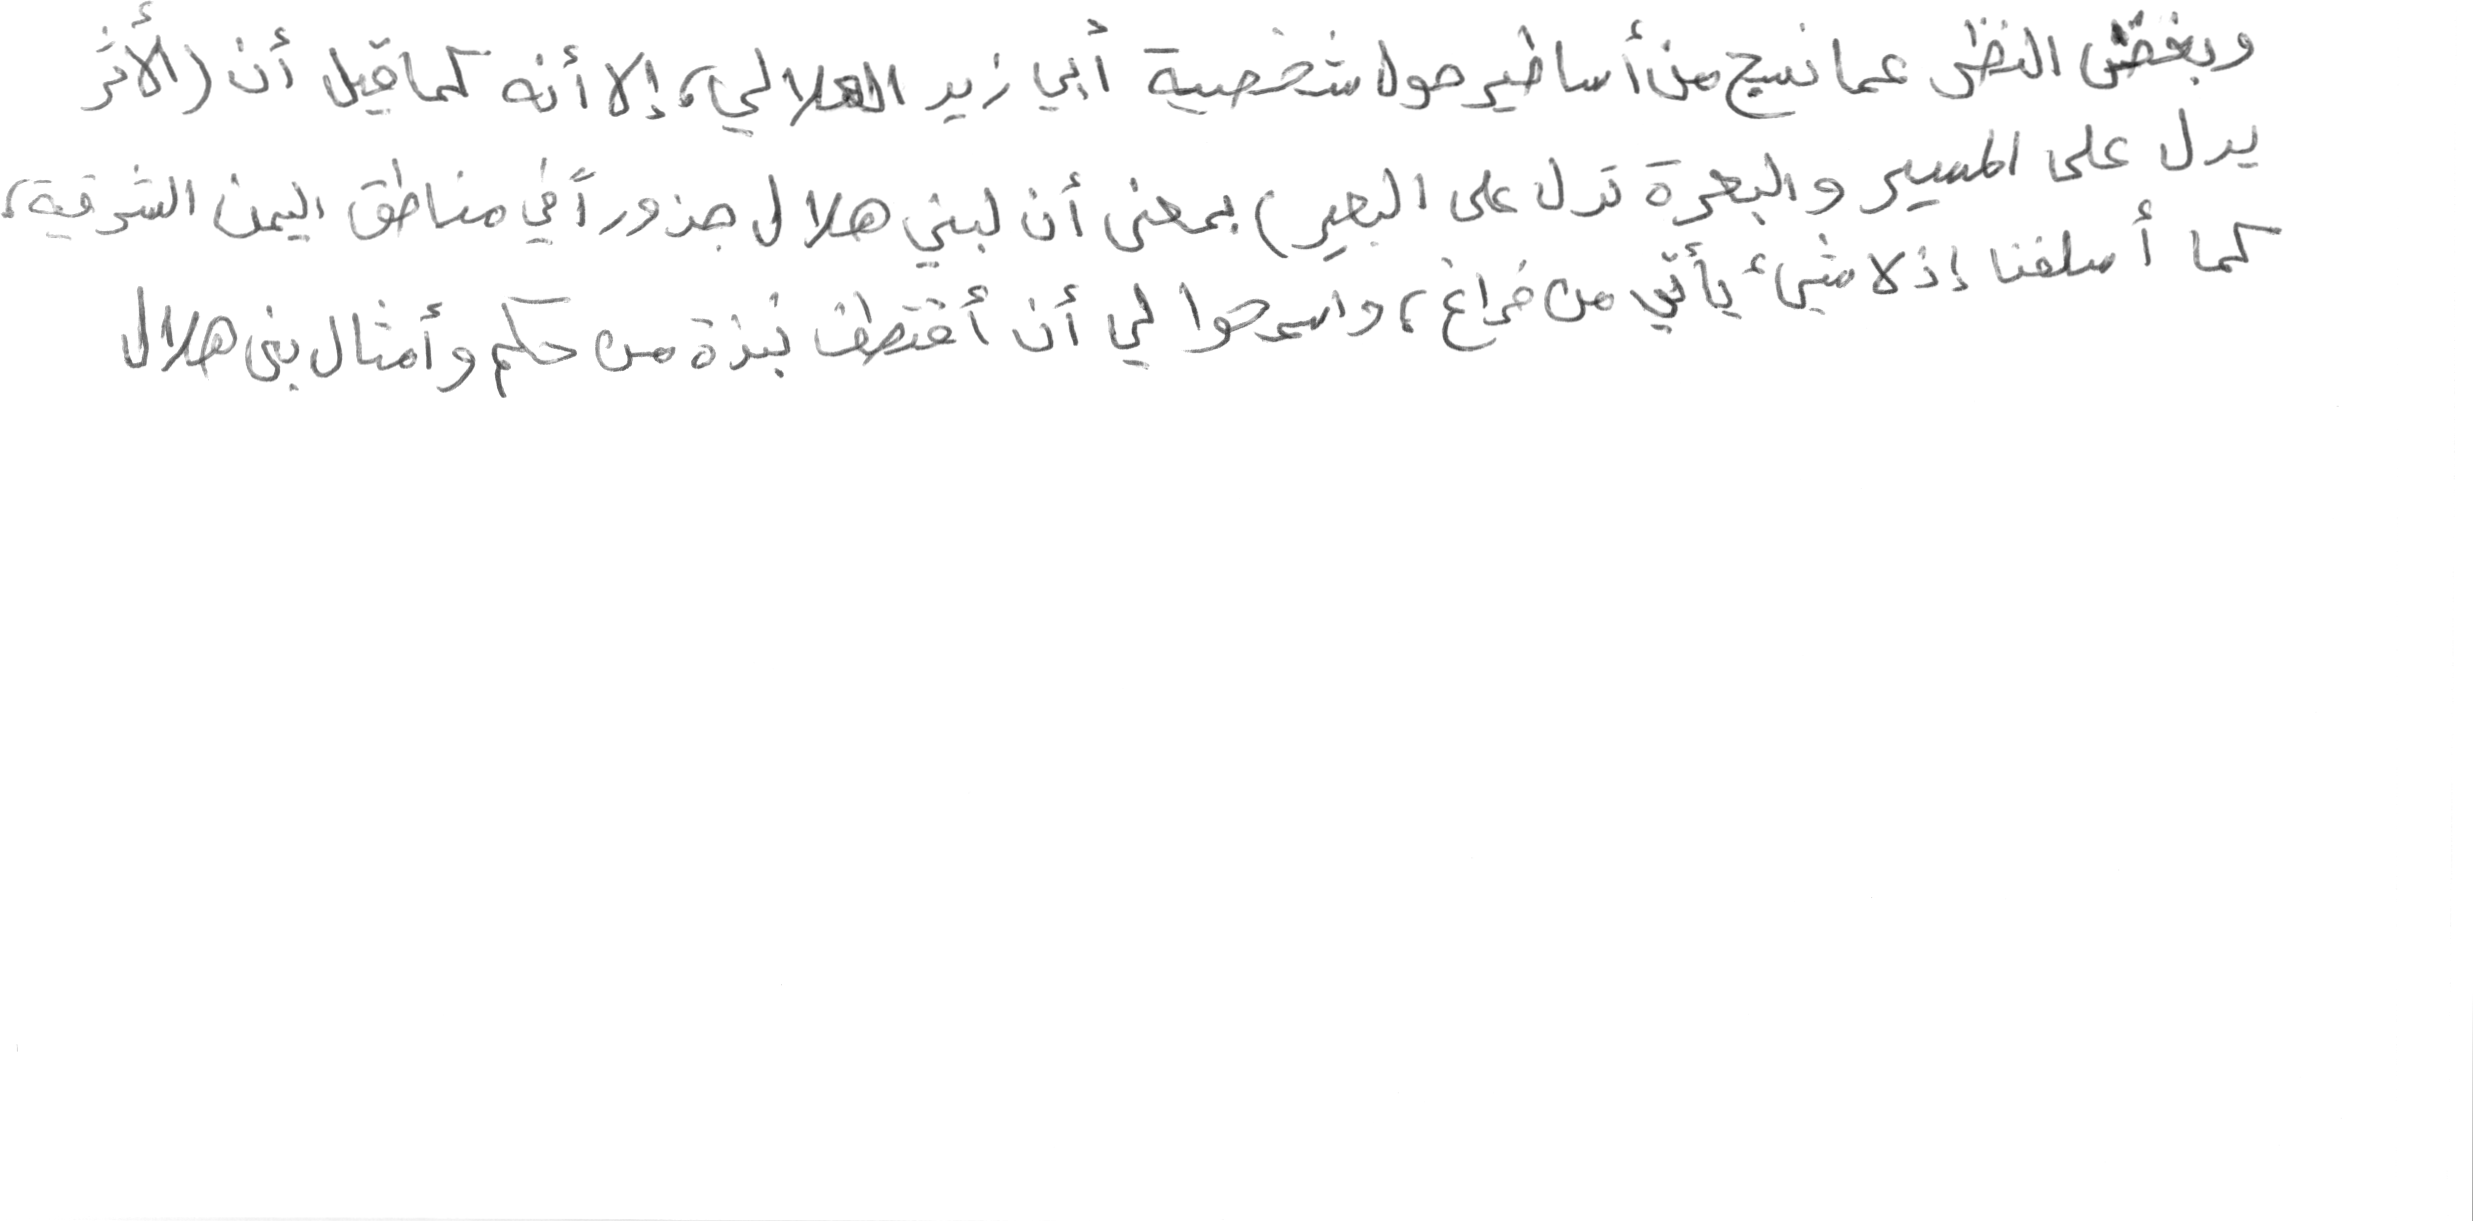 وبغض النظر عما نسج من أساطير حول شخصية أبي زيد الهلالي، إلا أنه كما قيل أن (الأثر
يدل على المسير والبعرة تدل على البعير) بمعنى أن لبني هلال جذوراً في مناطق اليمن الشرقية،
كما أسلفنا إذ لا شيء يأتي من فراغ، واسمحوا لي أن أقتطف نبذة من حكم وأمثال بني هلال